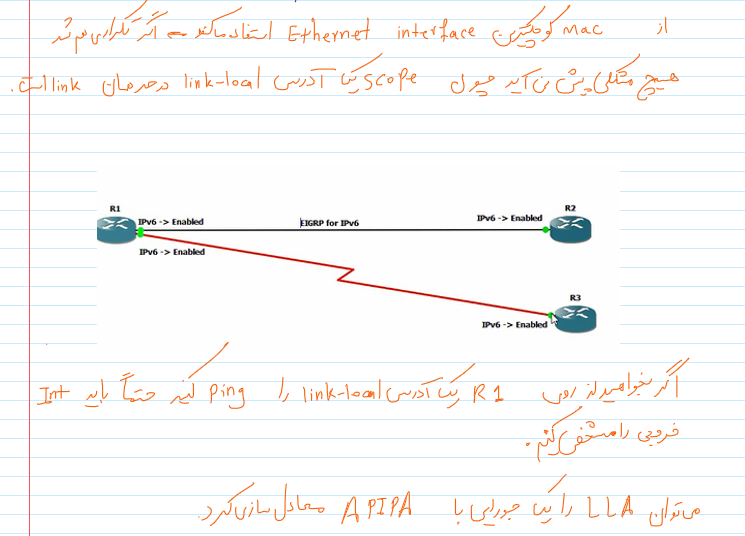 از MAC کوچکترین Ethernet interface استفاده می‌کند - اگر تکراری هم شد
هیچ مشکلی پیش نمی‌آید چون scope یک آدرس link-local در حد همان link است.
R1
R2
IPv6 -> Enabled
EIGRP for IPv6
IPv6 -> Enabled
IPv6 -> Enabled
R3
IPv6 -> Enabled
اگر بخواهید از روی R1 یک آدرس link-local را ping کنید حتماً باید Int
خروجی را مشخص کنیم.
می‌توان LLA را یک جورایی با APIPA معادل سازی کرد.